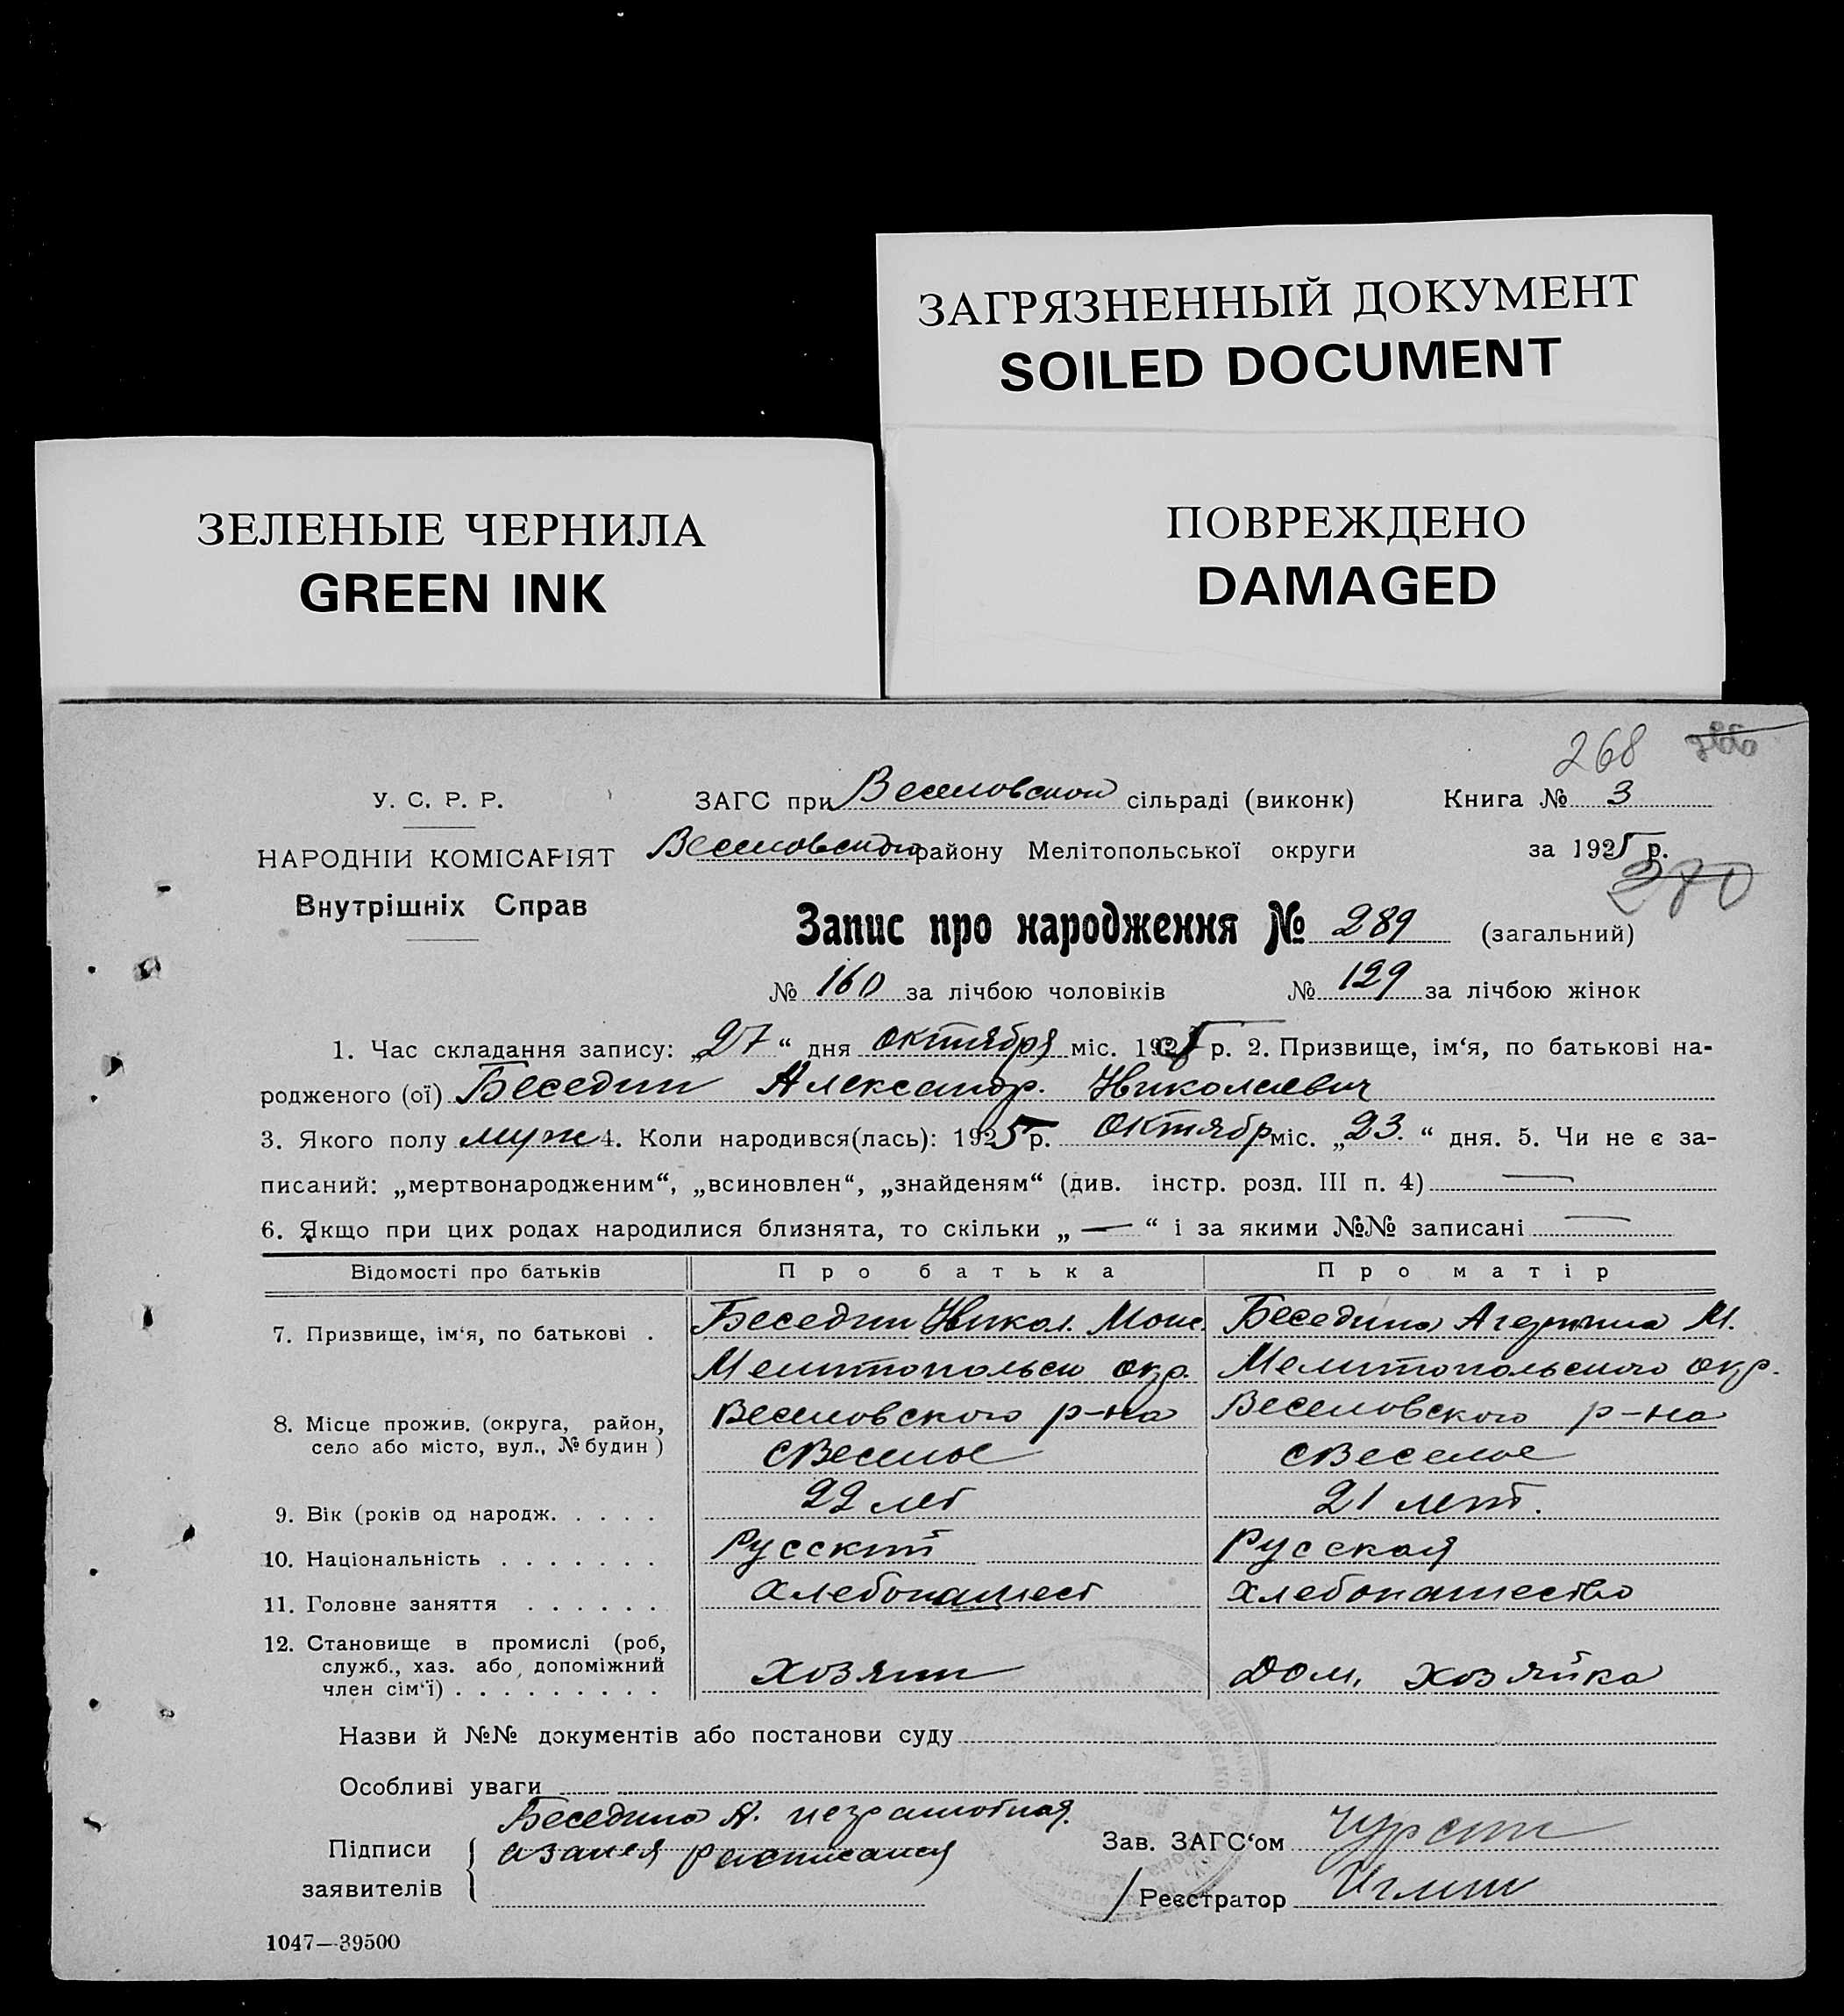 ЗАГРЯЗНЕННЫЙ ДОКУМЕНТ
SOILED DOCUMENT
ЗЕЛЕНЫЕ ЧЕРНИЛА
GREEN INK
ПОВРЕЖДЕНО
DAMAGED
268
У. С. Р. Р. ЗАГС при Веселовской сільраді (виконк) Книга № 3
НАРОДНІЙ КОМІСАРІЯТ Веселовского району Мелітопольської округи за 1925 р.
Внутрішніх Справ
270
Запис про народження № 289 (загальний)
№ 160 за лічбою чоловіків № 129 за лічбою жінок
1. Час складання запису: „27“ дня октября міс. 1925 р. 2. Призвище, ім‘я, по батькові на-
родженого (ої) Беседин Александр. Николаевич
3. Якого полу муж 4. Коли народився(лась): 1925 р. Октябр міс. „23.“ дня. 5. Чи не є за-
писаний: „мертвонародженим“, „всиновлен“, „знайденям“ (див. інстр. розд. III п. 4) —
6. Якщо при цих родах народилися близнята, то скільки „—“ і за якими №№ записані —
Відомості про батьків Про батька Про матір
7. Призвище, ім‘я, по батькові . Беседин Никол. Моис. Беседина М.
Мелитопольск окр. Мелитопольского окр.
8. Місце прожив. (округа, район, Веселовского р-на Веселовского р-на
село або місто, вул., № будин) с Веселое с Веселое
9. Вік (років од народж. . . . . 22 лет 21 лет.
10. Національність . . . . . . . Русский Русская
11. Головне заняття . . . . . . Хлебопашест хлебопашество
12. Становище в промислі (роб,
служб., хаз. або допоміжний хозяин Дом. хозяйка
член сім‘ї) . . . . . . . . .
Назви й №№ документів або постанови суду
Особливі уваги
Беседина А. неграмотная.
Підписи расписался Зав. ЗАГС‘ом
заявителів Реєстратор
1047—39500